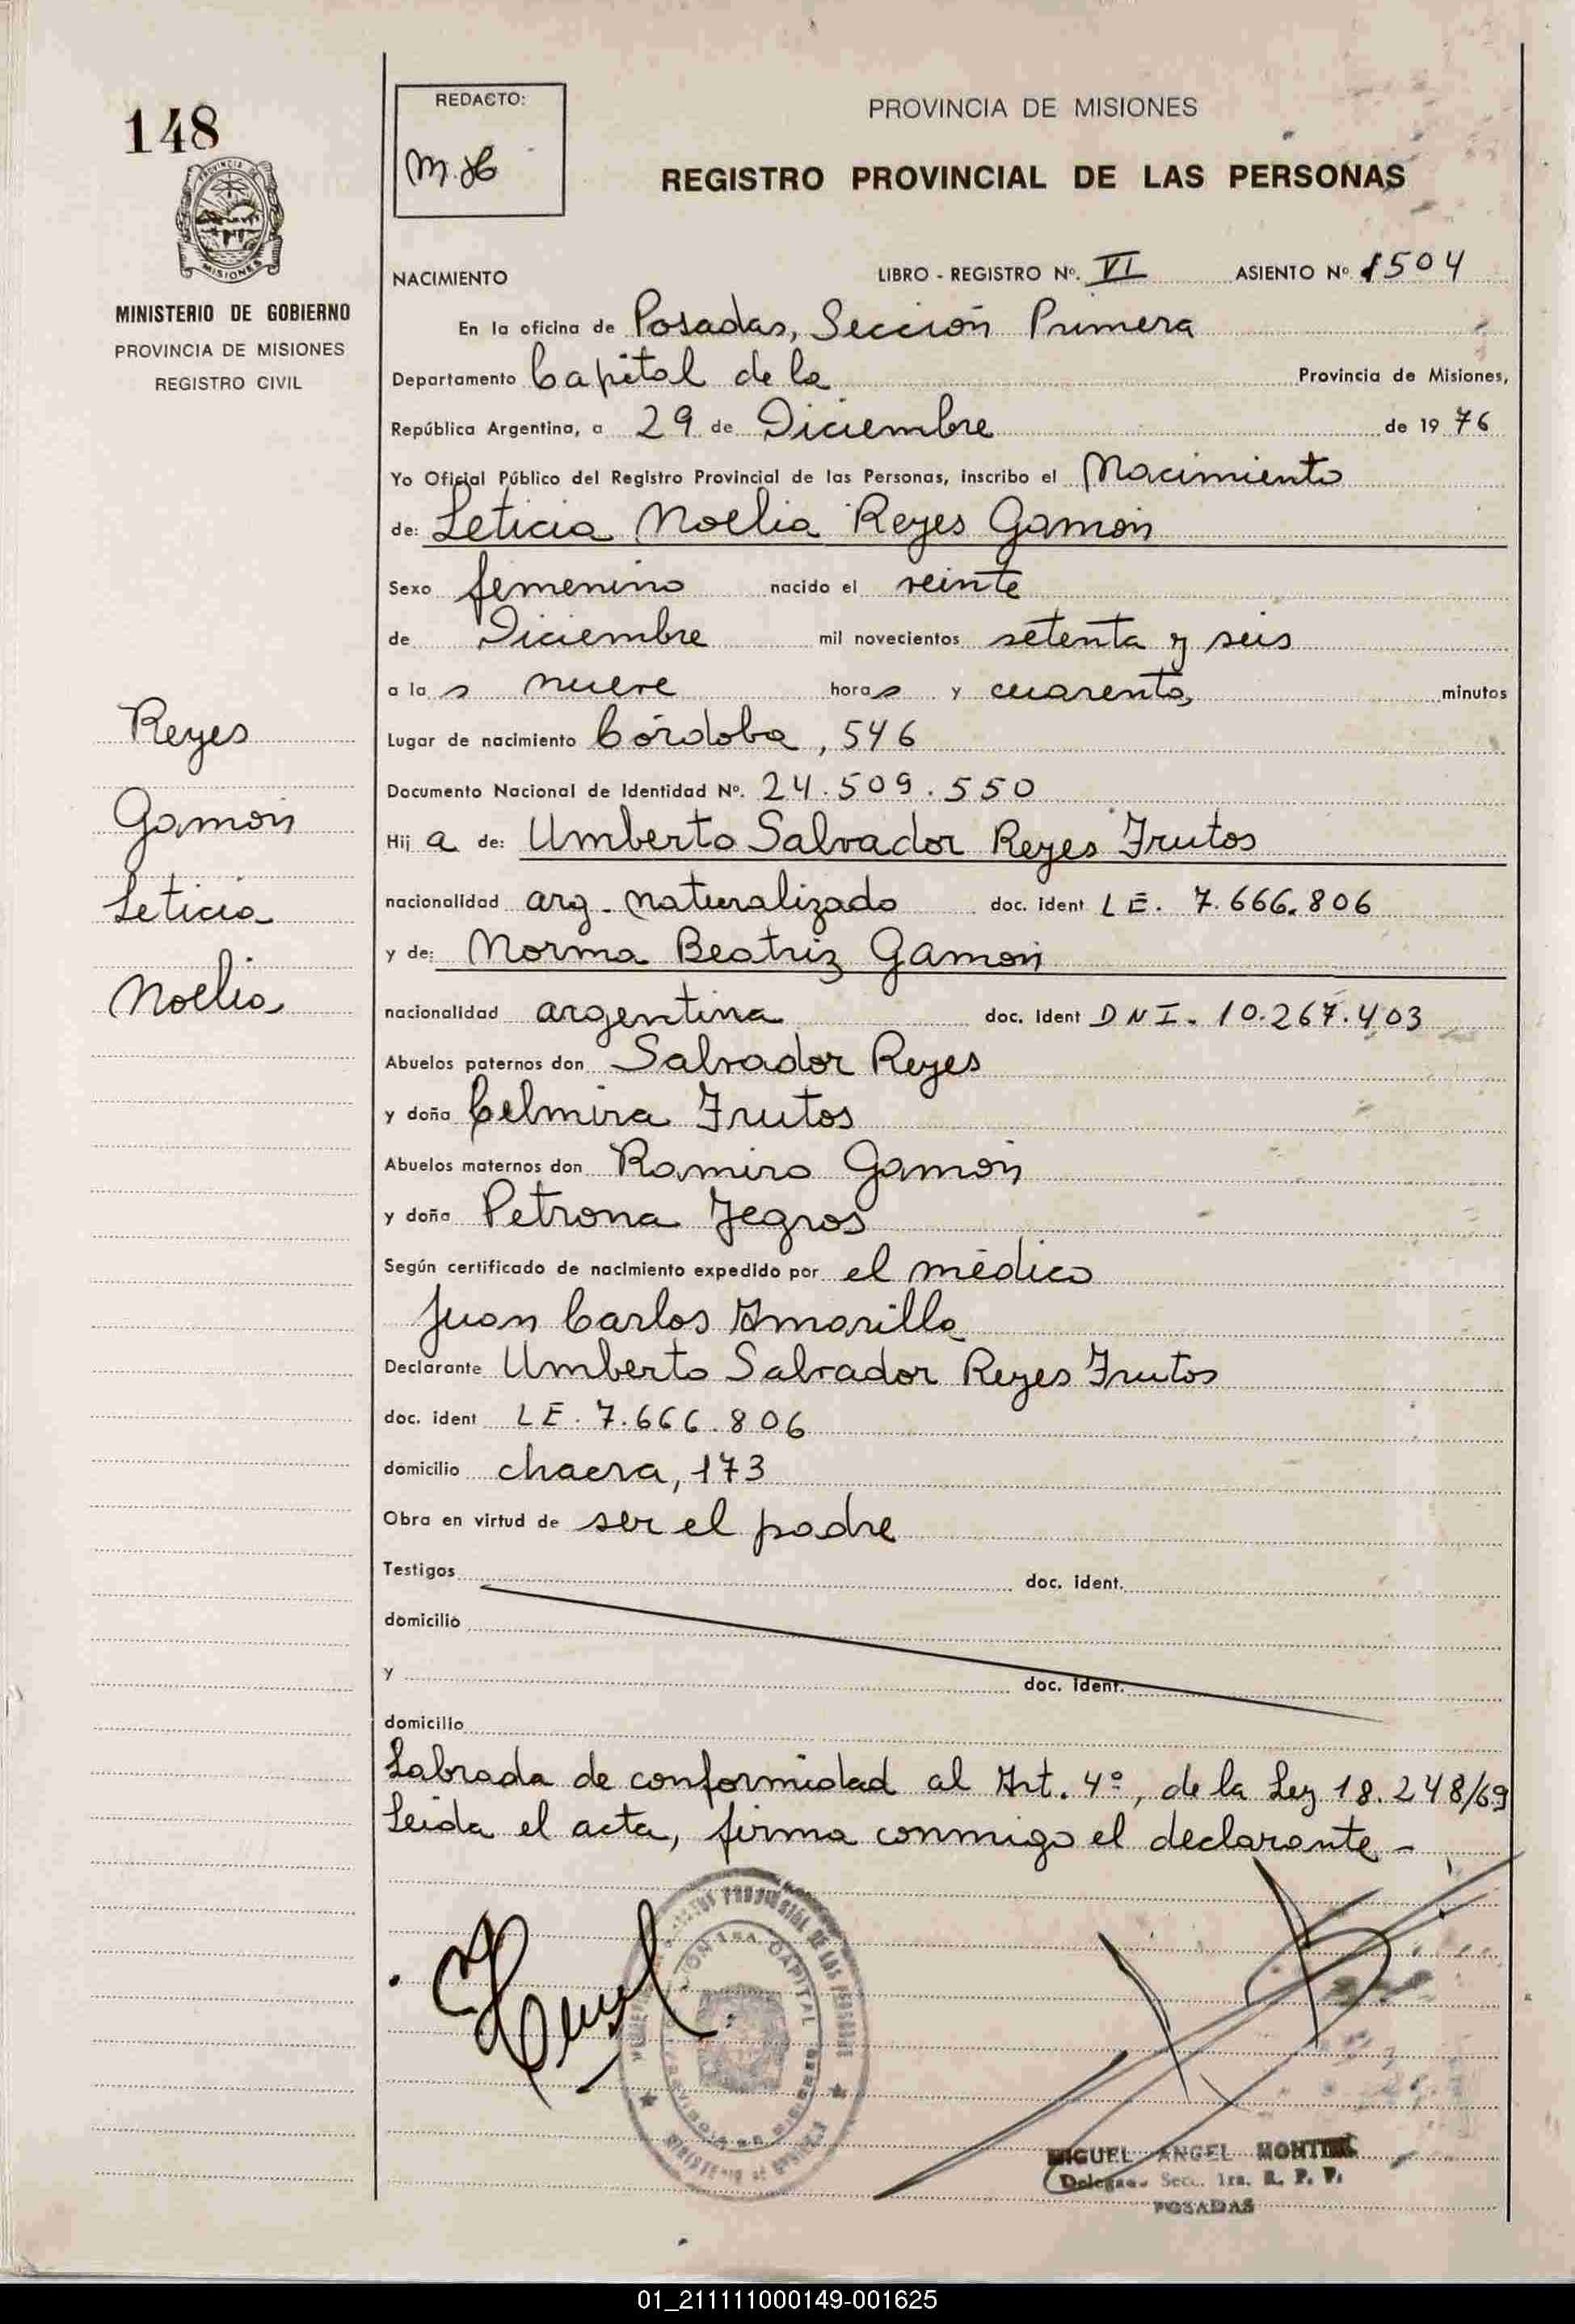 148
REDACTO:
PROVINCIA DE MISIONES
REGISTRO PROVINCIAL DE LAS PERSONAS
MISIONES
MINISTERIO DE GOBIERNO
PROVINCIA DE MISIONES
REGISTRO CIVIL
Reyes
Gamón
Leticia
Noelia
NACIMIENTO LIBRO - REGISTRO Nº. VI ASIENTO Nº. 1504
En la oficina de Posadas, Sección Primera
Departamento Capital de la Provincia de Misiones,
República Argentina, a 29 de Diciembre de 1976
Yo Oficial Público del Registro Provincial de las Personas, inscribo el Nacimiento
de: Leticia Noelia Reyes Gamón
Sexo femenino nacido el veinte
de Diciembre mil novecientos setenta y seis
a la s nueve horas y cuarenta, minutos
Lugar de nacimiento Córdoba, 546
Documento Nacional de Identidad Nº. 24.509.550
Hij a de: Umberto Salvador Reyes Frutos
nacionalidad arg. naturalizado doc. ident LE. 7.666.806
y de: Norma Beatriz Gamón
nacionalidad argentina doc. ident DNI. 10.267.403
Abuelos paternos don Salvador Reyes
y doña Celmira Frutos
Abuelos maternos don Ramiro Gamón
y doña Petrona Yegros
Según certificado de nacimiento expedido por el médico
Juan Carlos Amarilla
Declarante Umberto Salvador Reyes Frutos
doc. ident LE. 7.666.806
domicilio chacra, 173
Obra en virtud de ser el padre
Testigos doc. ident.
domicilio
y doc. ident.
domicilio
Labrada de conformidad al Art. 4º, de la Ley 18.248/69
Leida el acta, firma conmigo el declarante -
MIGUEL ANGEL
Sec. 1ra. R. P. P.
POSADAS
01_211111000149-001625